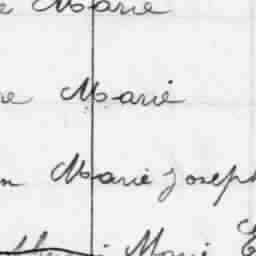 Marie
Marie
Marie Joseph
Marie